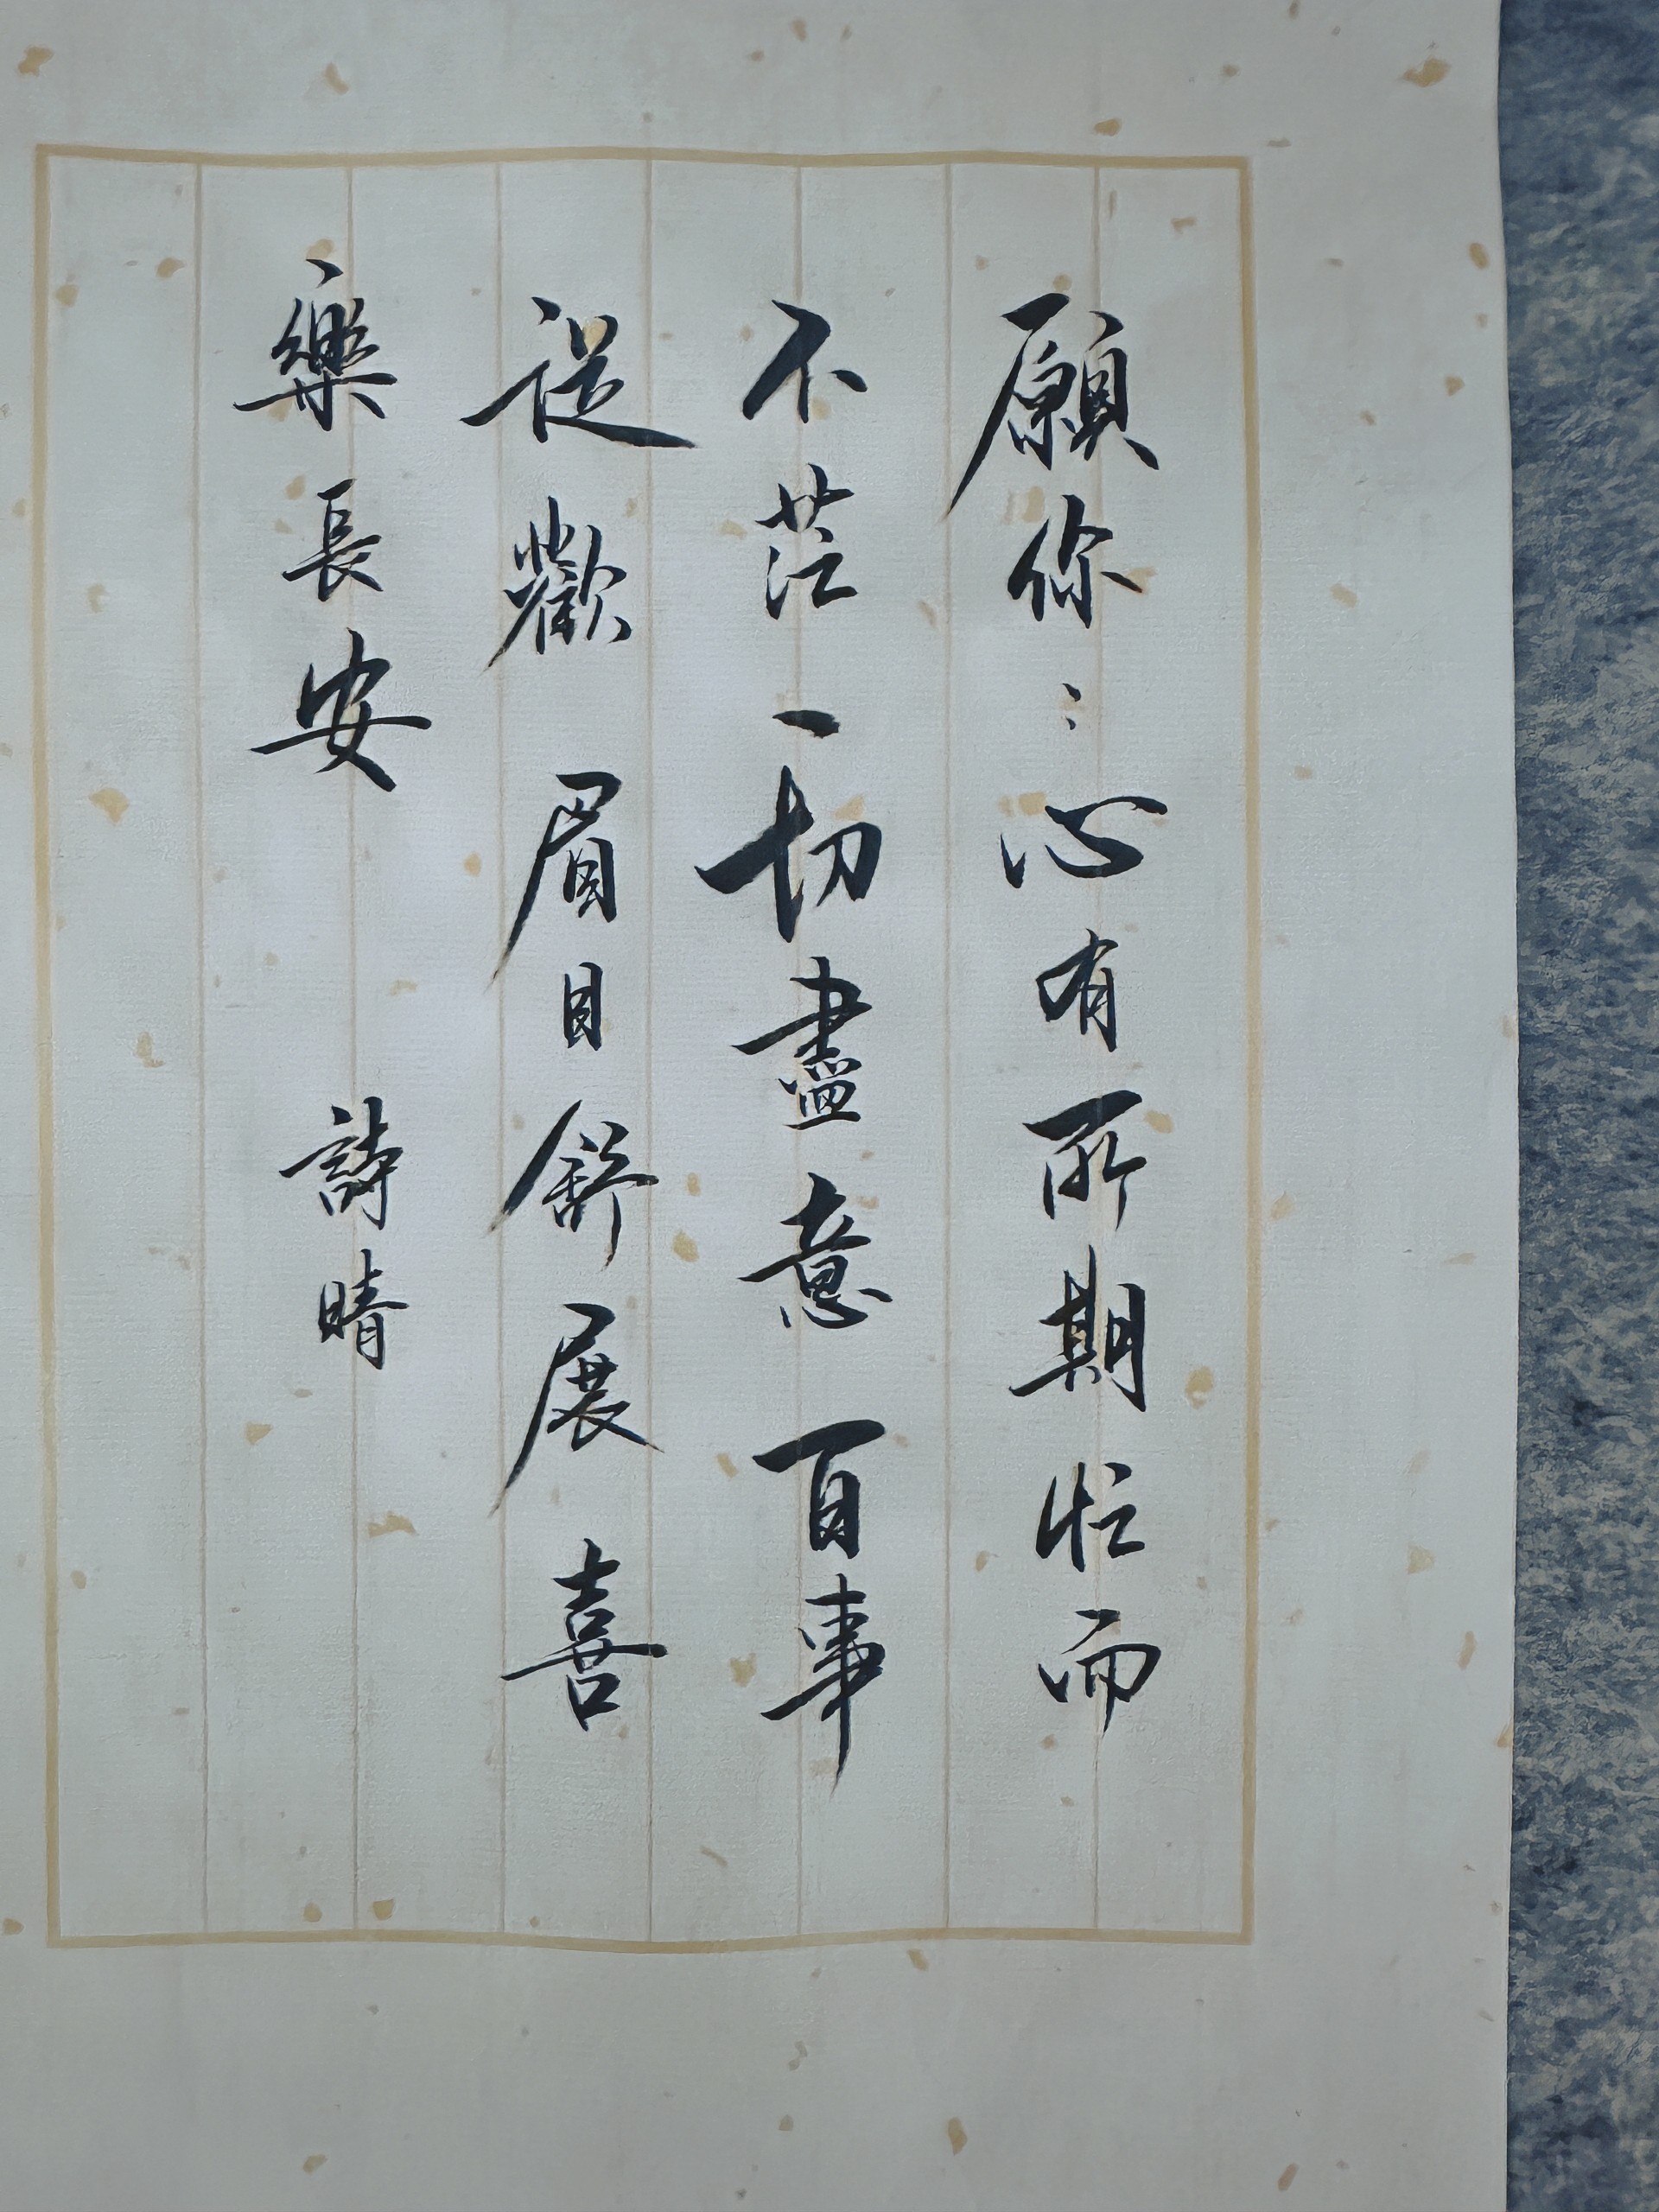 願你：心有所期忙而
不茫一切盡意百事
從歡眉目舒展喜
樂長安 詩晴